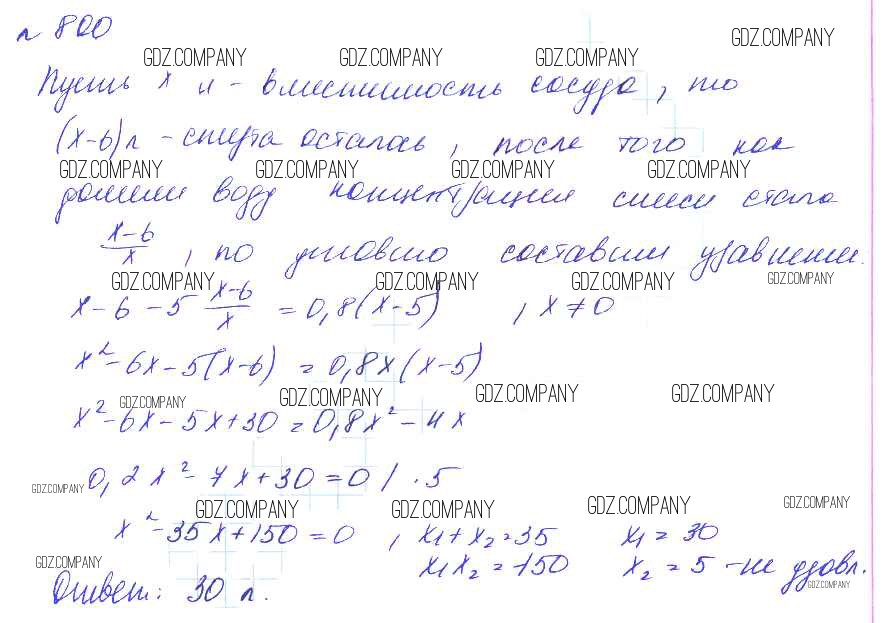 n 800
GDZ.COMPANY GDZ.COMPANY GDZ.COMPANY GDZ.COMPANY
Пусть x л - вместимость сосуда, то
(x-6) л - спирта осталось, после того как
GDZ.COMPANY GDZ.COMPANY GDZ.COMPANY GDZ.COMPANY
долили воду концентрация смеси стала
x-6/x, по условию составим уравнение.
GDZ.COMPANY GDZ.COMPANY GDZ.COMPANY GDZ.COMPANY
x-6-5 x-6/x = 0,8(x-5), x≠0
x²-6x-5(x-6) = 0,8x(x-5)
GDZ.COMPANY GDZ.COMPANY GDZ.COMPANY GDZ.COMPANY
x²-6x-5x+30=0,8x²-4x
GDZ.COMPANY 0,2x²-7x+30=0 / ·5
GDZ.COMPANY GDZ.COMPANY GDZ.COMPANY GDZ.COMPANY
x²-35x+150=0, x₁+x₂=35 x₁=30
GDZ.COMPANY x₁x₂=-150 x₂=5 -не удовл.
GDZ.COMPANY
Ответ: 30 л.